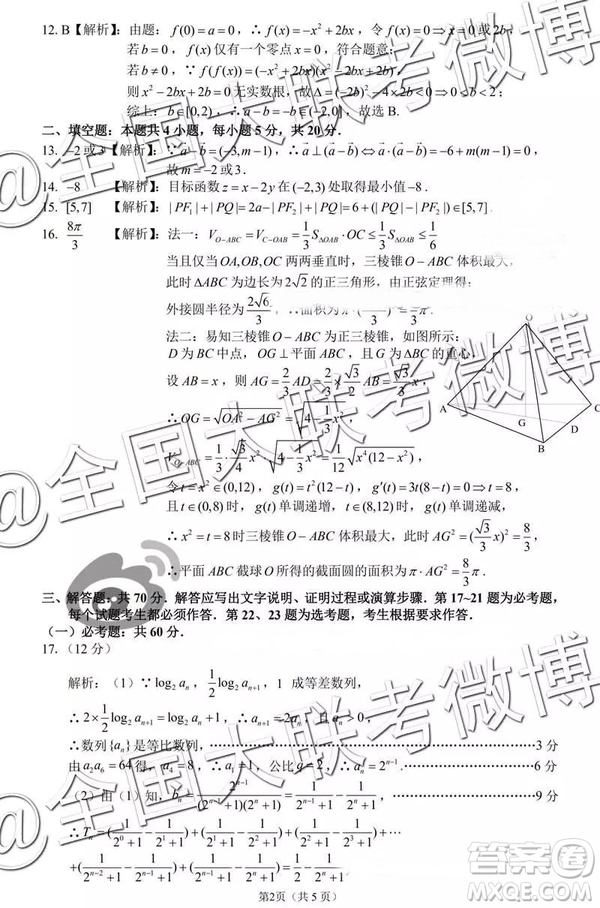 12. B【解析】：由题：f(0)=a=0，∴f(x)=-x²+2bx，令f(x)=0⇒x=0或2b，
若b=0，f(x)仅有一个零点x=0，符合题意；
若b≠0，∵f(f(x))=(-x²+2bx)(x²-2bx+2b)，
则x²-2bx+2b=0无实数根，故Δ=(-2b)²-4×2b<0⇒0<b<2；
综上：b∈[0,2)，∴a-b=-b∈(-2,0]，故选B.
二、填空题：本题共4小题，每小题5分，共20分．
13. -2或3【解析】：∵a-b=(-3,m-1)，∴a⊥(a-b)⇔a·(a-b)=-6+m(m-1)=0，
故m=-2或3．
14. -8 【解析】：目标函数z=x-2y在(-2,3)处取得最小值-8．
15. [5,7] 【解析】：|PF₁|+|PQ|=2a-|PF₂|+|PQ|=6+(|PQ|-|PF₂|)∈[5,7].
16. 8π/3 【解析】：法一：V_{O-ABC}=V_{C-OAB}=1/3 S_{ΔOAB}·OC≤1/3 S_{ΔOAB}≤1/6
当且仅当OA,OB,OC两两垂直时，三棱锥O-ABC体积最大，
此时ΔABC为边长为2√2的正三角形，由正弦定理得：
外接圆半径为2√6/3，∴面积为
法二：易知三棱锥O-ABC为正三棱锥，如图所示：
D为BC中点，OG⊥平面ABC，且G为ΔABC的重心，
设AB=x，则AG=2/3 AD=2/3×√3/2 AB=√3/3 x，
∴OG=√(OA²-AG²)=√(4-x²/3)，
V_{O-ABC}=1/3·√3/4 x²·√(4-x²/3)=1/12 √(x⁴(12-x²))，
令t=x²∈(0,12)，g(t)=t²(12-t)，g'(t)=3t(8-t)=0⇒t=8
且t∈(0,8)时，g(t)单调递增，t∈(8,12)时，g(t)单调递减，
∴x²=t=8时三棱锥O-ABC体积最大，此时AG²=(√3/3 x)²=8/3
∴平面ABC截球O所得的截面圆的面积为π·AG²=8/3 π．
O
A
G
D
C
B
三、解答题：共70分．解答应写出文字说明、证明过程或演算步骤．第17~21题为必考题，
每个试题考生都必须作答．第22、23题为选考题，考生根据要求作答．
（一）必考题：共60分．
17.（12分）
解析：（1）∵log₂aₙ，1/2 log₂aₙ₊₁，1 成等差数列
∴2×1/2 log₂aₙ₊₁=log₂aₙ+1，∴aₙ₊₁=2aₙ，且a₁>0
∴数列{aₙ}是等比数列，……3分
由a₂a₆=64得，a₄=8，∴a₁=1，公比q=2，∴aₙ=2ⁿ⁻¹……6分
（2）由（1）知，bₙ=2ⁿ⁻¹/((2ⁿ⁻¹+1)(2ⁿ+1))=1/(2ⁿ⁻¹+1)-1/(2ⁿ+1)……9分
∴Tₙ=(1/(2⁰+1)-1/(2¹+1))+(1/(2¹+1)-1/(2²+1))+(1/(2²+1)-1/(2³+1))+…
+(1/(2ⁿ⁻²+1)-1/(2ⁿ⁻¹+1))+(1/(2ⁿ⁻¹+1)-1/(2ⁿ+1))
第2页（共5页）
@全国大联考微博
@全国大联考微博
@全国大联考微博
答案圈
MXQE.COM